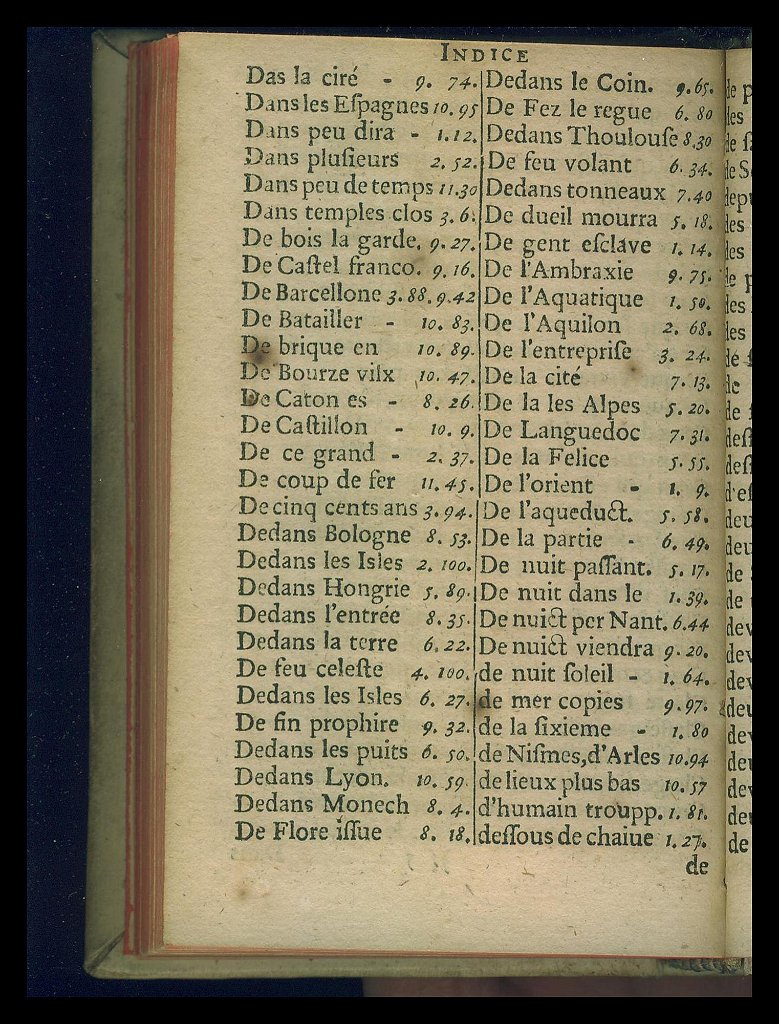 INDICE
Das la ciré - 9. 74.
Dans les Eſpagnes 10. 95
Dans peu dira - 1. 12.
Dans pluſieurs 2. 52.
Dans peu de temps 11. 30
Dans temples clos 3. 6.
De bois la garde. 9. 27.
De Caſtel franco. 9. 16.
De Barcellone 3. 88. 9. 42
De Batailler - 10. 83.
De brique en 10. 89.
De Bourze vilx 10. 47.
De Caton es - 8. 26.
De Caſtillon - 10. 9.
De ce grand - 2. 37.
De coup de fer 11. 45.
De cinq cents ans 3. 94.
Dedans Bologne 8. 53.
Dedans les Isles 2. 100.
Dedans Hongrie 5. 89.
Dedans l'entrée 8. 35.
Dedans la terre 6. 22.
De feu celeſte 4. 100.
Dedans les Isles 6. 27.
De fin prophire 9. 32.
Dedans les puits 6. 50.
Dedans Lyon. 10. 59.
Dedans Monech 8. 4.
De Flore iſſue 8. 18.
Dedans le Coin. 9. 65.
De Fez le regue 6. 80
Dedans Thoulouſe 8. 30
De feu volant 6. 34.
Dedans tonneaux 7. 40
De dueil mourra 5. 18.
De gent eſclave 1. 14.
De l'Ambraxie 9. 75.
De l'Aquatique 1. 50.
De l'Aquilon 2. 68.
De l'entrepriſe 3. 24.
De la cité 7. 13.
De la les Alpes 5. 20.
De Languedoc 7. 31.
De la Felice 5. 55.
De l'orient - 1. 9.
De l'aqueduct. 5. 58.
De la partie - 6. 49.
De nuit paſſant. 5. 17.
De nuit dans le 1. 39.
De nuict per Nant. 6. 44
De nuict viendra 9. 20.
de nuit ſoleil - 1. 64.
de mer copies 9. 97.
de la ſixieme - 1. 80
de Niſmes, d'Arles 10. 94
de lieux plus bas 10. 57
d'humain troupp. 1. 81.
deſſous de chaiue 1. 27.
de